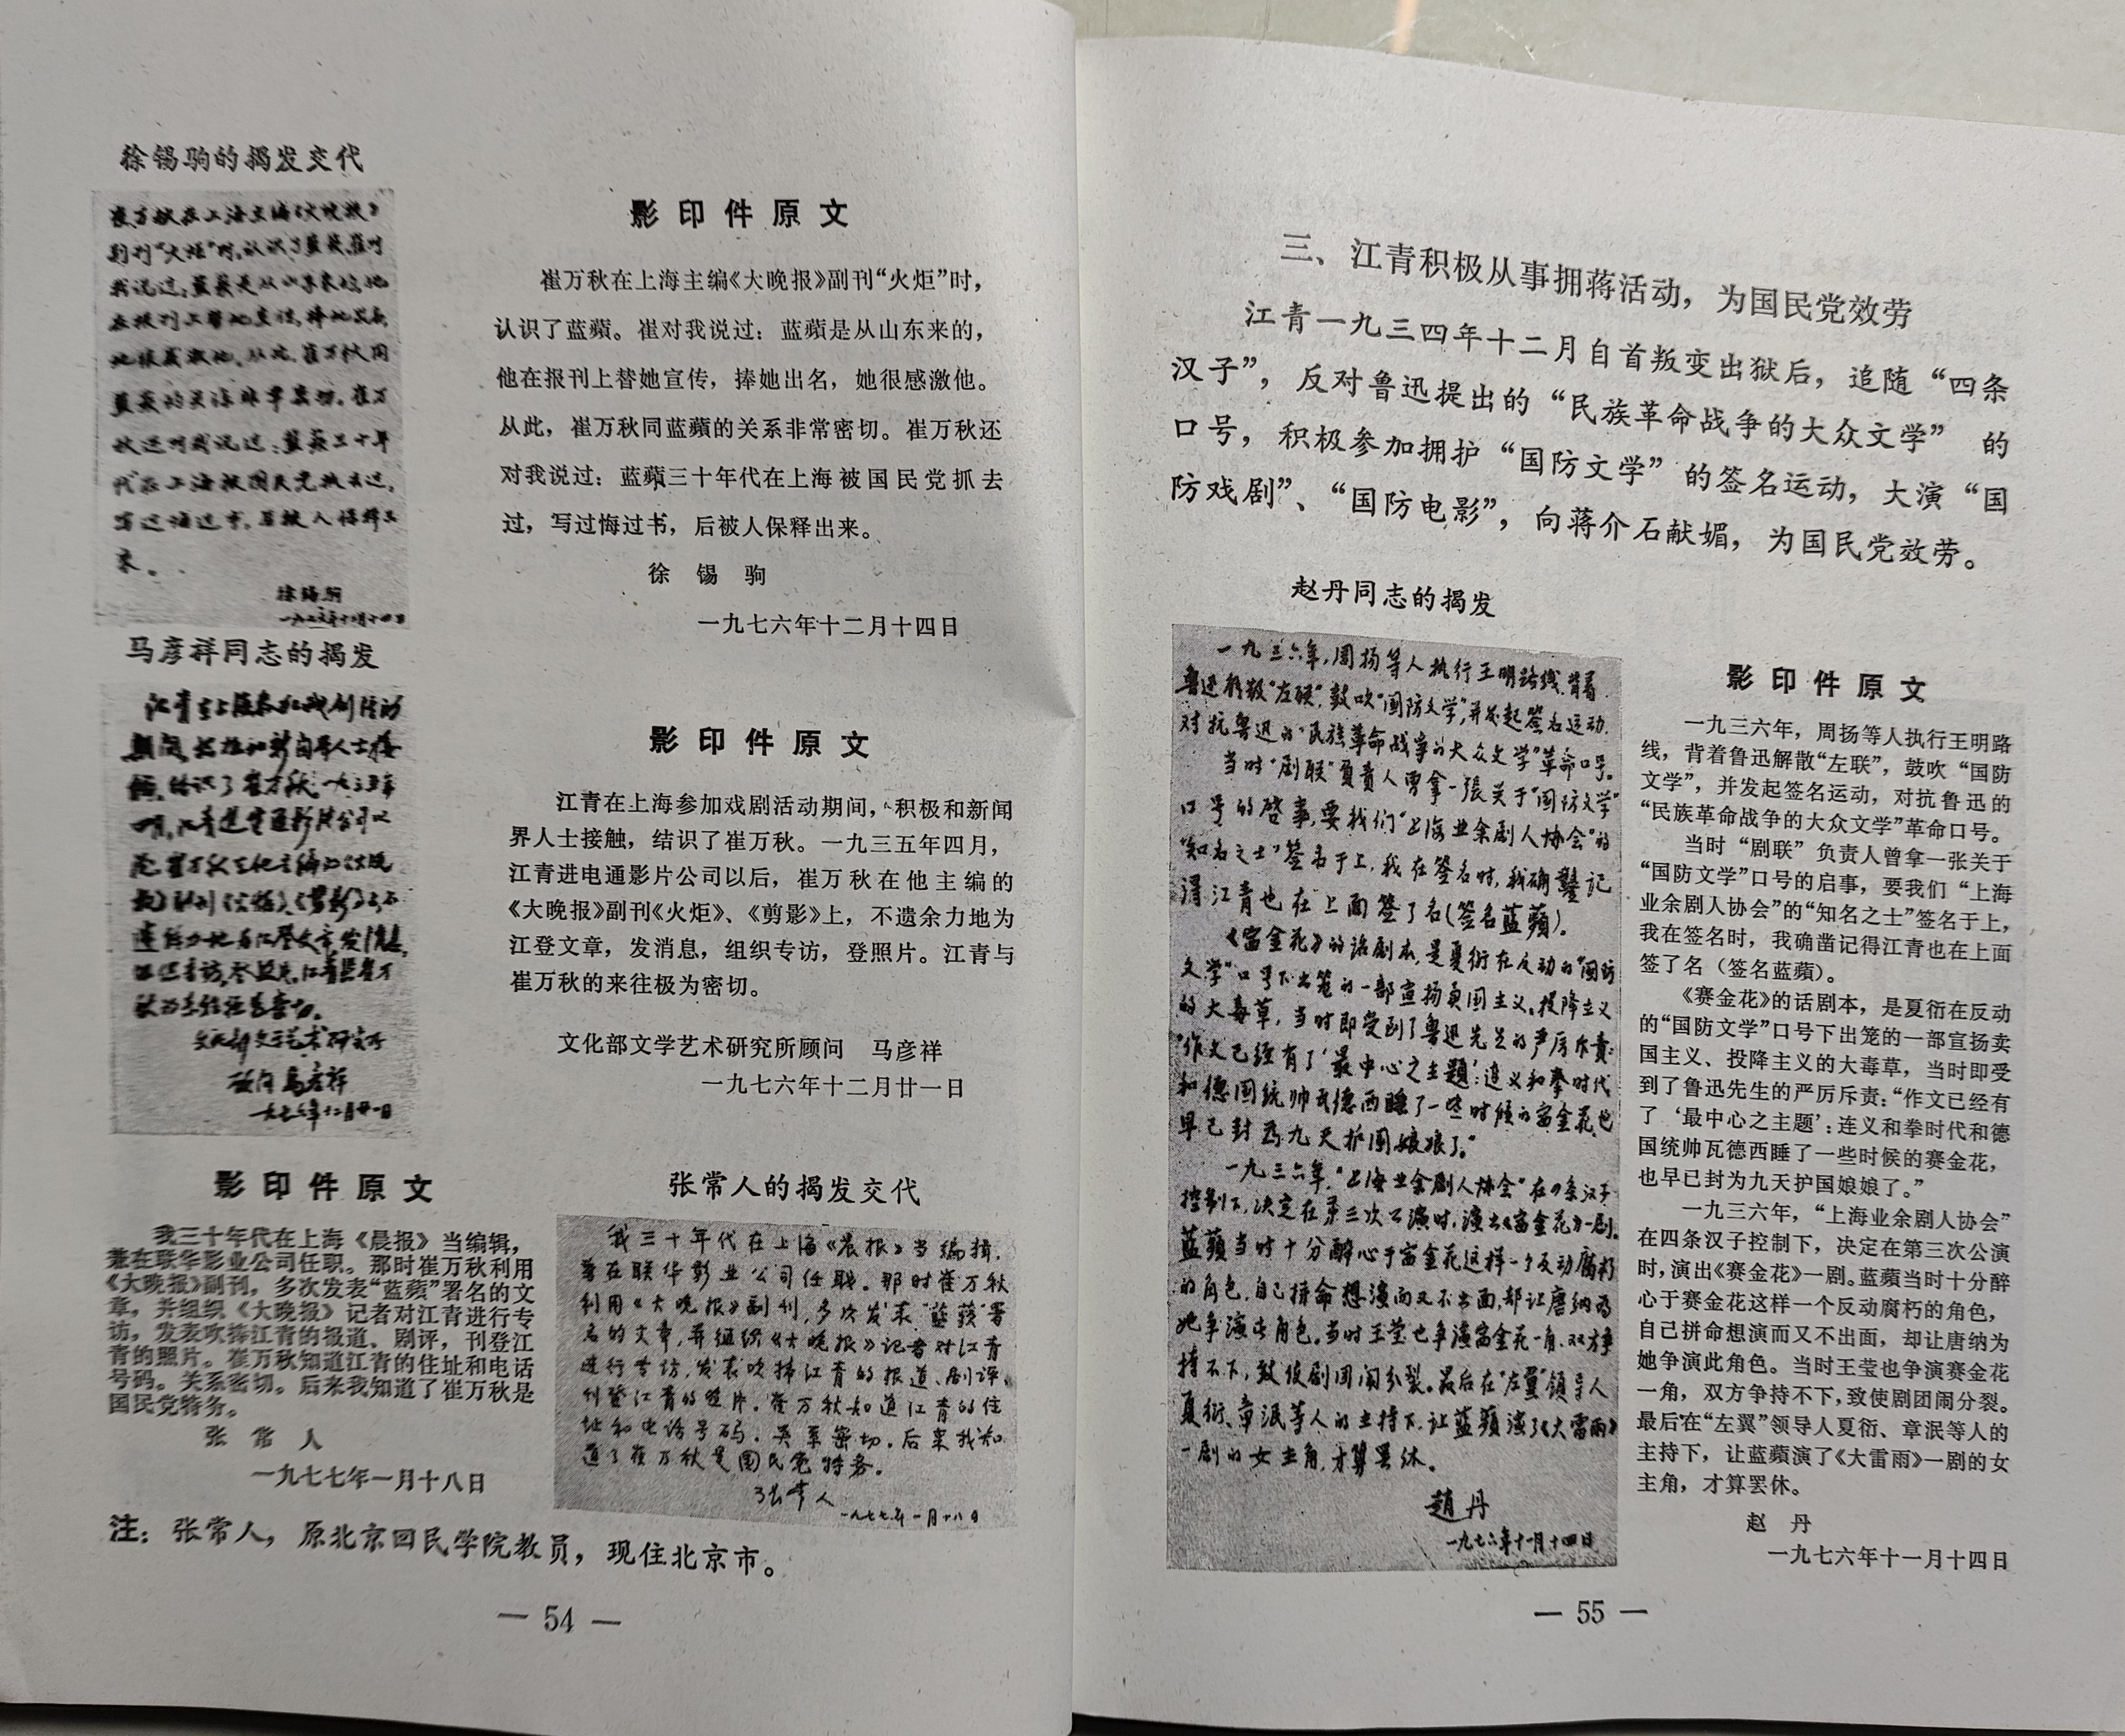 徐锡驹的揭发交代
崔万秋在上海主编《大晚报》
副刊“火炬”时，认识了蓝蘋。崔对
我说过：蓝蘋是从山东来的，他
在报刊上替她宣传，捧她出名，
她很感激他。从此，崔万秋同
蓝蘋的关系非常密切。崔万
秋还对我说过：蓝蘋三十年
代在上海被国民党抓去过，
写过悔过书，后被人保释出
来。
徐锡驹
一九七六年十二月十四日
影印件原文
崔万秋在上海主编《大晚报》副刊“火炬”时，
认识了蓝蘋。崔对我说过：蓝蘋是从山东来的，
他在报刊上替她宣传，捧她出名，她很感激他。
从此，崔万秋同蓝蘋的关系非常密切。崔万秋还
对我说过：蓝蘋三十年代在上海被国民党抓去
过，写过悔过书，后被人保释出来。
徐锡驹
一九七六年十二月十四日
马彦祥同志的揭发
江青在上海参加戏剧活动
期间，积极和新闻界人士接
触，结识了崔万秋。一九三五年
四月，江青进电通影片公司以
后，崔万秋在他主编的《大晚
报》副刊《火炬》、《剪影》上，不
遗余力地为江登文章，发消息，
组织专访，登照片。江青与崔万
秋的来往极为密切。
文化部文学艺术研究所
顾问 马彦祥
一九七六年十二月廿一日
影印件原文
江青在上海参加戏剧活动期间，积极和新闻
界人士接触，结识了崔万秋。一九三五年四月，
江青进电通影片公司以后，崔万秋在他主编的
《大晚报》副刊《火炬》、《剪影》上，不遗余力地为
江登文章，发消息，组织专访，登照片。江青与
崔万秋的来往极为密切。
文化部文学艺术研究所顾问 马彦祥
一九七六年十二月廿一日
影印件原文
我三十年代在上海《晨报》当编辑，
兼在联华影业公司任职。那时崔万秋利用
《大晚报》副刊，多次发表“蓝蘋”署名的文
章，并组织《大晚报》记者对江青进行专
访，发表吹捧江青的报道、剧评，刊登江
青的照片。崔万秋知道江青的住址和电话
号码。关系密切。后来我知道了崔万秋是
国民党特务。
张常人
一九七七年一月十八日
张常人的揭发交代
我三十年代在上海《晨报》当编辑，
兼在联华影业公司任职。那时崔万秋
利用《大晚报》副刊，多次发表“蓝蘋”署
名的文章，并组织《大晚报》记者对江青
进行专访，发表吹捧江青的报道、剧评，
刊登江青的照片。崔万秋知道江青的住
址和电话号码。关系密切。后来我知
道了崔万秋是国民党特务。
张常人
一九七七年一月十八日
注：张常人，原北京回民学院教员，现住北京市。
— 54 —
三、江青积极从事拥蒋活动，为国民党效劳
江青一九三四年十二月自首叛变出狱后，追随“四条
汉子”，反对鲁迅提出的“民族革命战争的大众文学”的
口号，积极参加拥护“国防文学”的签名运动，大演“国
防戏剧”、“国防电影”，向蒋介石献媚，为国民党效劳。
赵丹同志的揭发
一九三六年，周扬等人执行王明路线，背着
鲁迅解散“左联”，鼓吹“国防文学”，并发起签名运动，
对抗鲁迅的“民族革命战争的大众文学”革命口号。
当时“剧联”负责人曾拿一張关于“国防文学”
口号的启事，要我们“上海业余剧人协会”的
“知名之士”签名于上，我在签名时，我确鑿记
得江青也在上面签了名（签名蓝蘋）。
《赛金花》的话剧本，是夏衍在反动的“国防
文学”口号下出笼的一部宣扬卖国主义、投降主义
的大毒草，当时即受到了鲁迅先生的严厉斥责：
“作文已经有了‘最中心之主题’：连义和拳时代
和德国统帅瓦德西睡了一些时候的赛金花，也
早已封为九天护国娘娘了。”
一九三六年，“上海业余剧人协会”在四条汉子
控制下，决定在第三次公演时，演出《赛金花》一剧。
蓝蘋当时十分醉心于赛金花这样一个反动腐朽
的角色，自己拼命想演而又不出面，却让唐纳为
她争演此角色。当时王莹也争演赛金花一角，双方争
持不下，致使剧团闹分裂。最后在“左翼”领导人
夏衍、章泯等人的主持下，让蓝蘋演了《大雷雨》
一剧的女主角，才算罢休。
趙丹
一九七六年十一月十四日
影印件原文
一九三六年，周扬等人执行王明路
线，背着鲁迅解散“左联”，鼓吹“国防
文学”，并发起签名运动，对抗鲁迅的
“民族革命战争的大众文学”革命口号。
当时“剧联”负责人曾拿一张关于
“国防文学”口号的启事，要我们“上海
业余剧人协会”的“知名之士”签名于上，
我在签名时，我确凿记得江青也在上面
签了名（签名蓝蘋）。
《赛金花》的话剧本，是夏衍在反动
的“国防文学”口号下出笼的一部宣扬卖
国主义、投降主义的大毒草，当时即受
到了鲁迅先生的严厉斥责：“作文已经有
了‘最中心之主题’：连义和拳时代和德
国统帅瓦德西睡了一些时候的赛金花，
也早已封为九天护国娘娘了。”
一九三六年，“上海业余剧人协会”
在四条汉子控制下，决定在第三次公演
时，演出《赛金花》一剧。蓝蘋当时十分醉
心于赛金花这样一个反动腐朽的角色，
自己拼命想演而又不出面，却让唐纳为
她争演此角色。当时王莹也争演赛金花
一角，双方争持不下，致使剧团闹分裂。
最后在“左翼”领导人夏衍、章泯等人的
主持下，让蓝蘋演了《大雷雨》一剧的女
主角，才算罢休。
赵丹
一九七六年十一月十四日
— 55 —